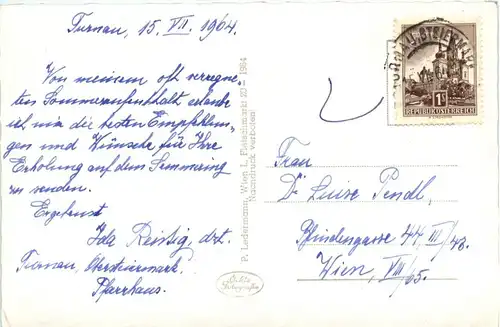 Turnau, 15. VII. 1964.
Von meinem oft verregne-
ten Sommeraufenthalt erlaube
ich mir die besten Empfehlun-
gen und Wünsche für Ihre
Erholung auf dem Semmering
zu senden.
Ergebenst
Ida Reistig, dzt.
Turnau, Obersteiermark.
Pfarrhaus.
P. Ledermann, Wien I, Fleischmarkt 20 - 1964
Nachdruck verboten!
Echte
Fotografie
1S
REPUBLIK ÖSTERREICH
Frau
Dr Luise Pendl,
Wien, VIII/65.